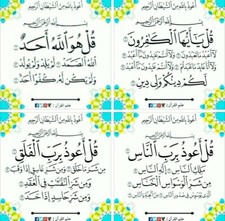 أعوذ بالله من الشيطان الرجيم
بسم الله الرحمن الرحيم
قُلْ هُوَ اللَّهُ أَحَدٌ
اللَّهُ الصَّمَدُ لَمْ يَلِدْ وَلَمْ يُولَدْ
وَلَمْ يَكُن لَّهُ كُفُوًا أَحَدٌ
أعوذ بالله من الشيطان الرجيم
بسم الله الرحمن الرحيم
قُلْ يَا أَيُّهَا الْكَافِرُونَ
لَا أَعْبُدُ مَا تَعْبُدُونَ وَلَا أَنتُمْ عَابِدُونَ مَا أَعْبُدُ
وَلَا أَنَا عَابِدٌ مَّا عَبَدتُّمْ وَلَا أَنتُمْ عَابِدُونَ مَا أَعْبُدُ
لَكُمْ دِينُكُمْ وَلِيَ دِينِ
أعوذ بالله من الشيطان الرجيم
بسم الله الرحمن الرحيم
قُلْ أَعُوذُ بِرَبِّ الْفَلَقِ
مِن شَرِّ مَا خَلَقَ وَمِن شَرِّ غَاسِقٍ إِذَا وَقَبَ
وَمِن شَرِّ النَّفَّاثَاتِ فِي الْعُقَدِ
وَمِن شَرِّ حَاسِدٍ إِذَا حَسَدَ
أعوذ بالله من الشيطان الرجيم
بسم الله الرحمن الرحيم
قُلْ أَعُوذُ بِرَبِّ النَّاسِ
مَلِكِ النَّاسِ إِلَٰهِ النَّاسِ
مِن شَرِّ الْوَسْوَاسِ الْخَنَّاسِ